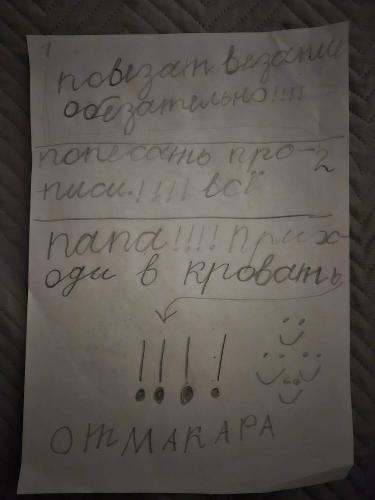 1
повезат везание
обезательно!!!!
попесать про- 2
писи.!!!! всё
папа!!!! Прихо-
оди в кровать
!!!!
ОТ МАКАРА